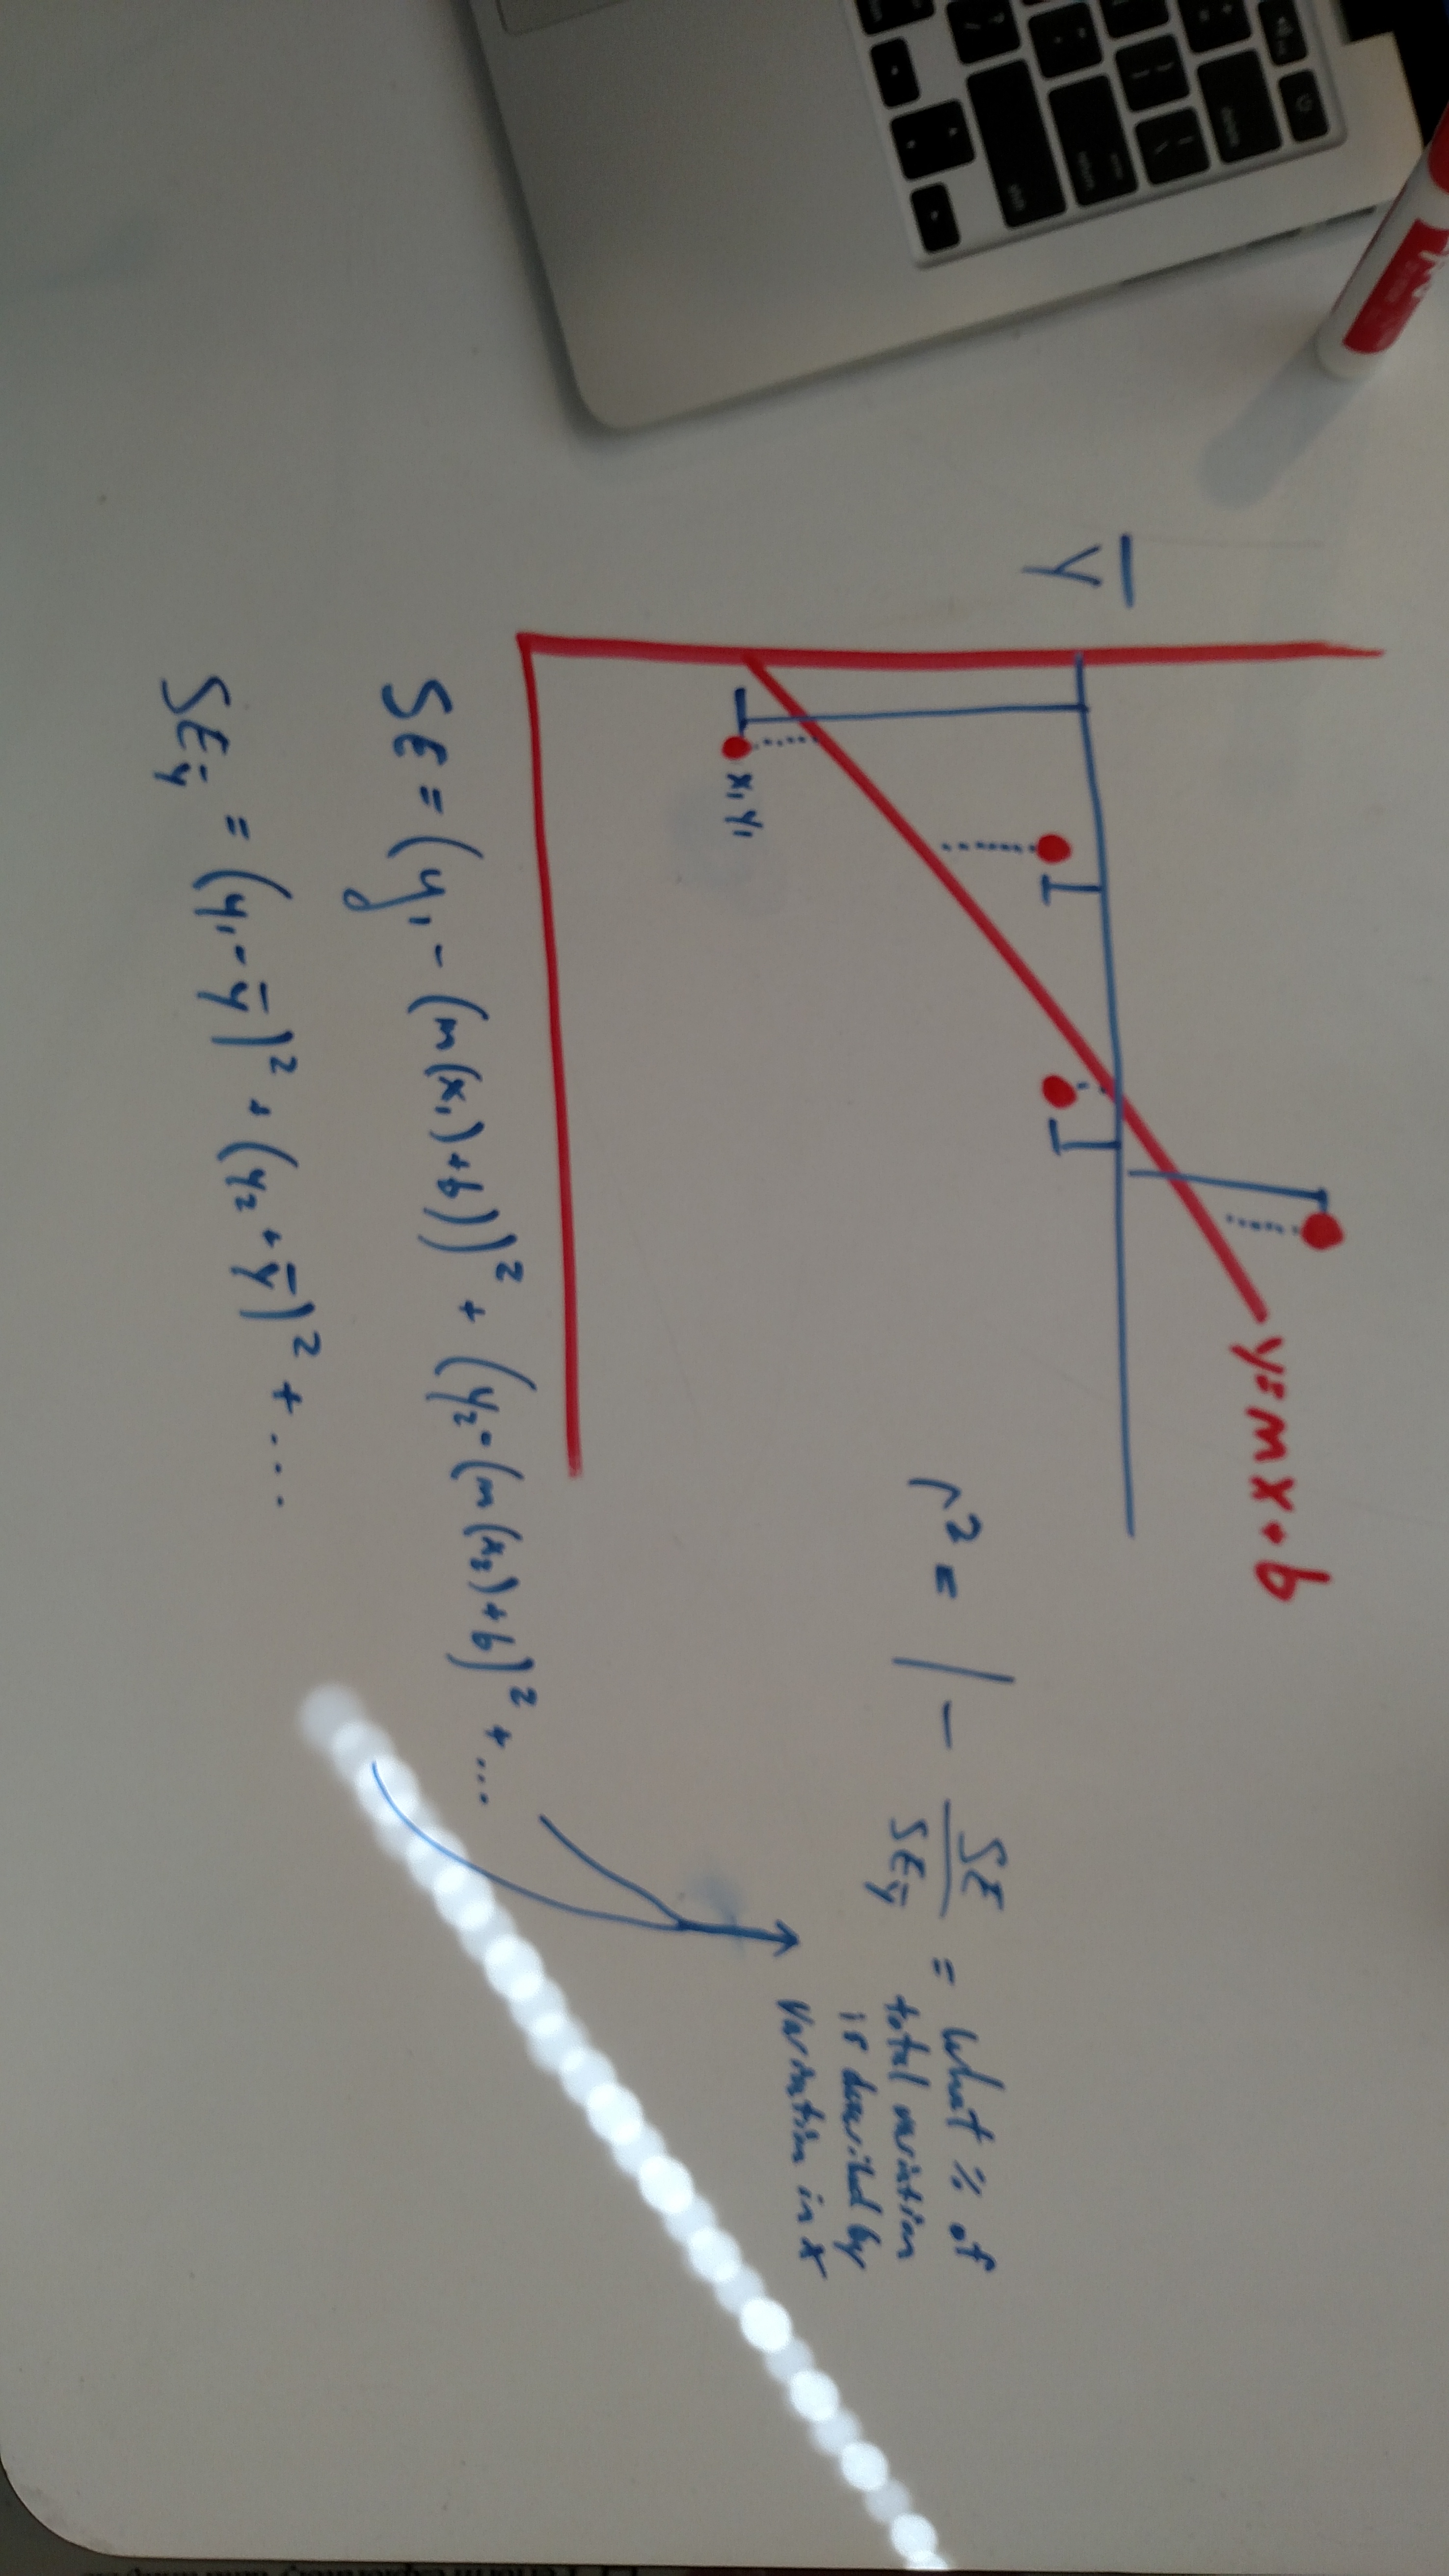 y=mx+b
Y̅
x₁ y₁
r² = 1 - SE/SE_y̅ = what % of
total variation
is described by
variation in x
SE = (y₁ - (m(x₁)+b))² + (y₂ - (m(x₂)+b)² + ...
SE_y̅ = (y₁ - y̅)² + (y₂ + y̅)² + ...
delete
return
shift